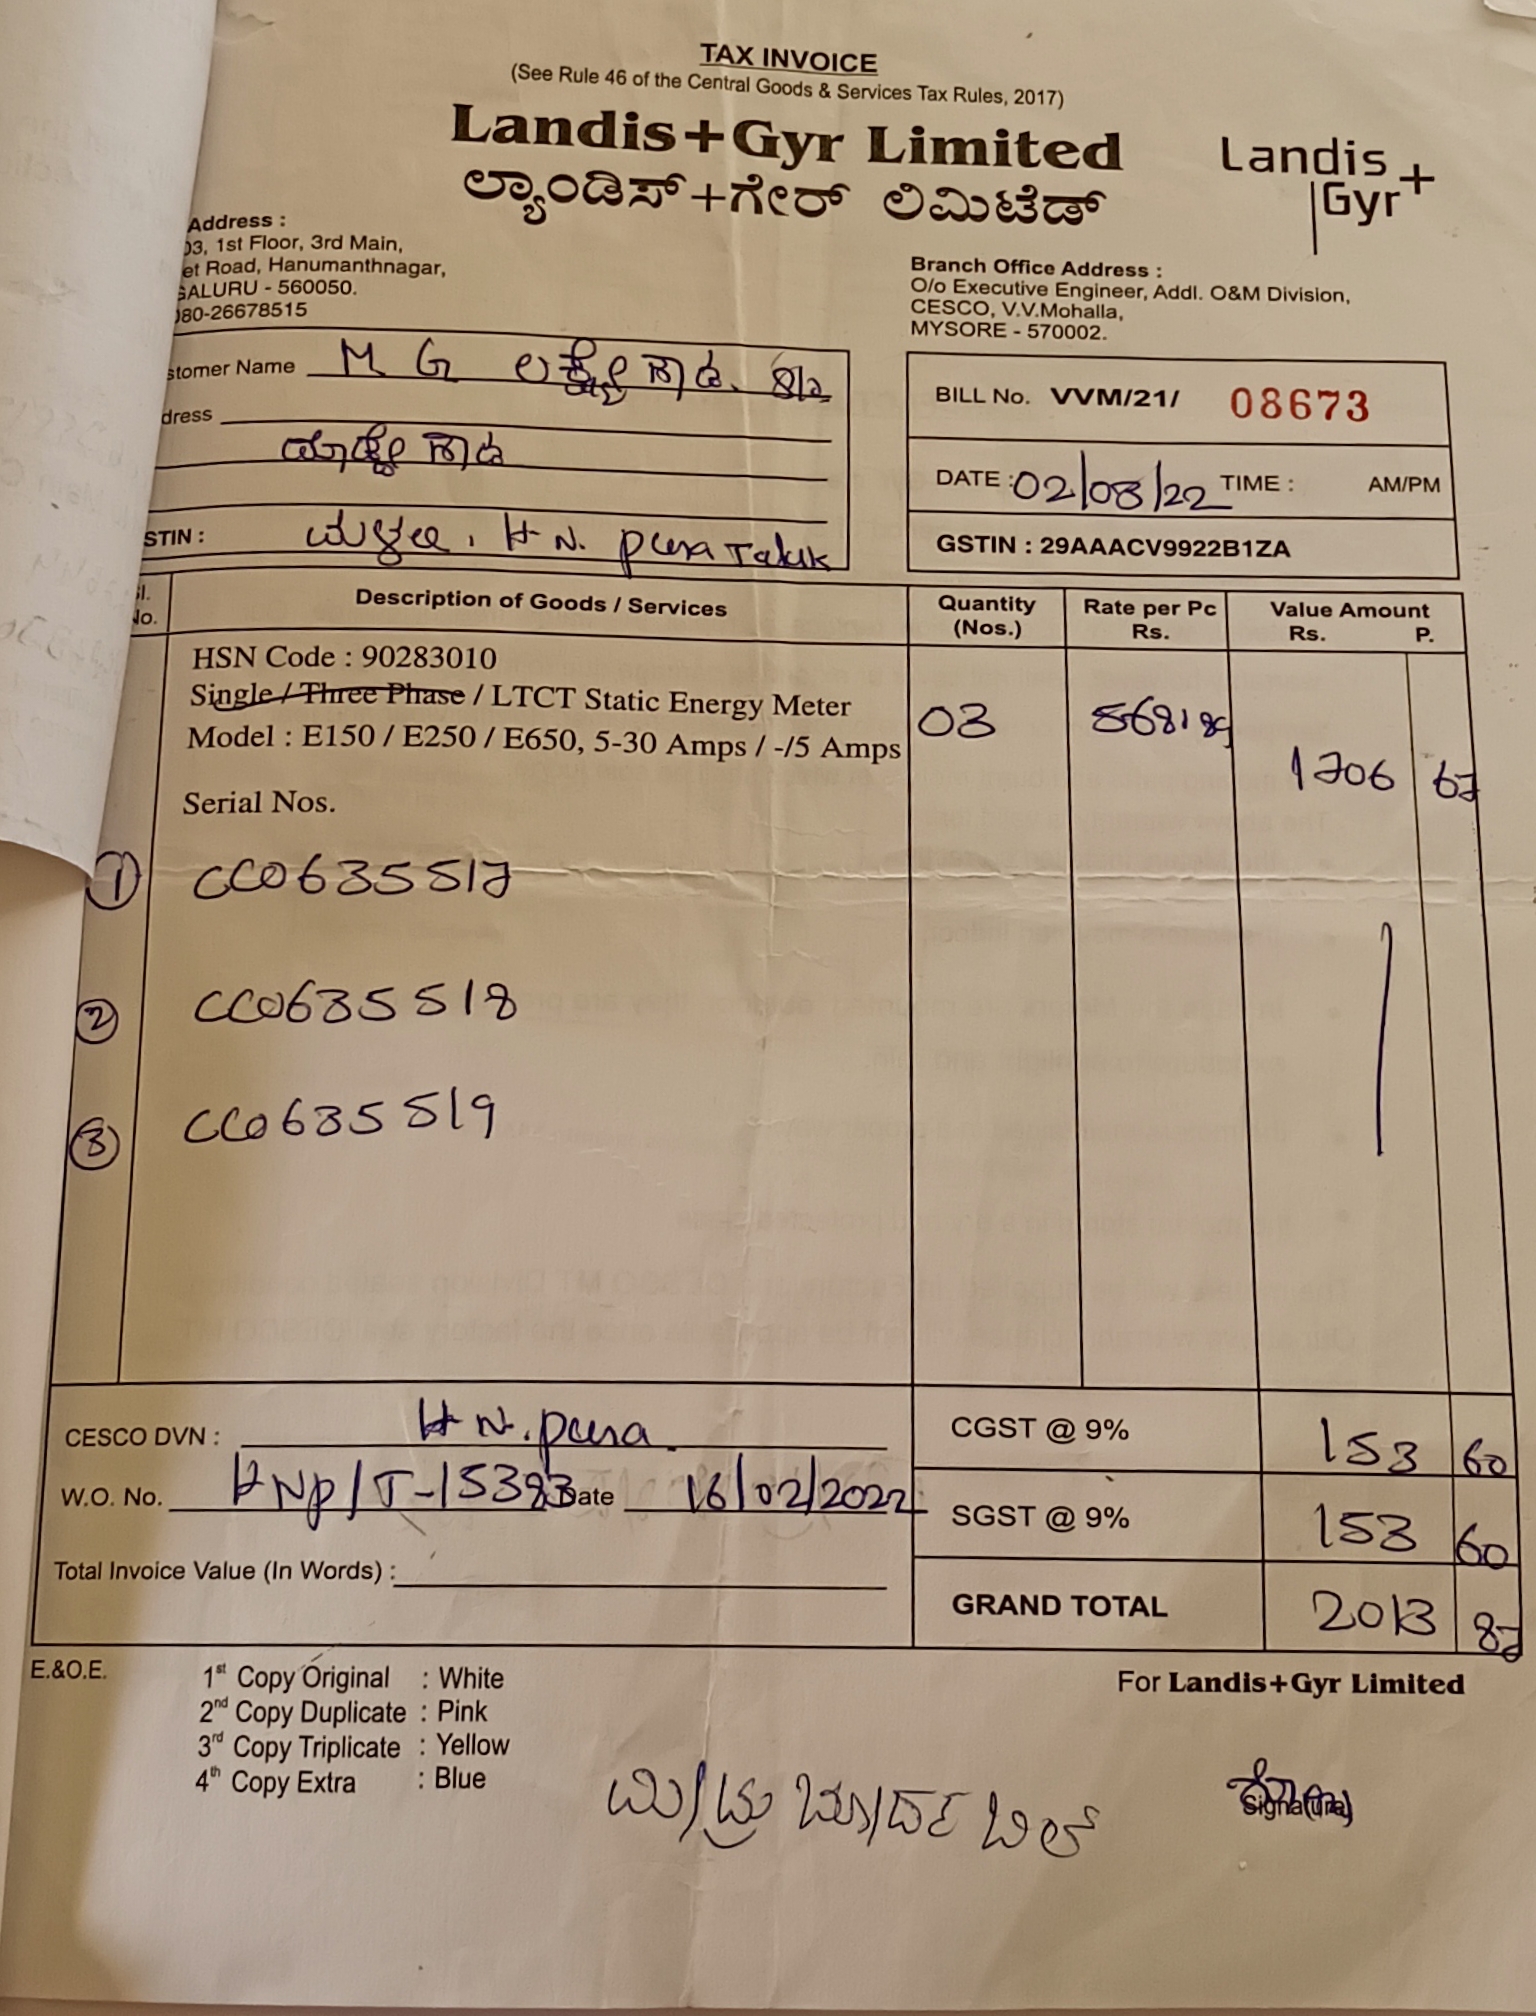 TAX INVOICE
(See Rule 46 of the Central Goods & Services Tax Rules, 2017)
Landis+Gyr Limited
ಲ್ಯಾಂಡಿಸ್+ಗೇರ್ ಲಿಮಿಟೆಡ್
Landis+
Gyr
Address :
03, 1st Floor, 3rd Main,
et Road, Hanumanthnagar,
GALURU - 560050.
080-26678515
Branch Office Address :
O/o Executive Engineer, Addl. O&M Division,
CESCO, V.V.Mohalla,
MYSORE - 570002.
stomer Name M G
dress
STIN : H N. pura Taluk
BILL No. VVM/21/ 08673
DATE : 02/08/22 TIME : AM/PM
GSTIN : 29AAACV9922B1ZA
Sl. No. Description of Goods / Services Quantity (Nos.) Rate per Pc Rs. Value Amount Rs. P.
HSN Code : 90283010
Single / Three Phase / LTCT Static Energy Meter
Model : E150 / E250 / E650, 5-30 Amps / -/5 Amps
03 568 89 1706 67
Serial Nos.
1 CC0635517
2 CC0635518
3 CC0635519
CESCO DVN : H N. pura
W.O. No. HNP/T-15393 Date 16/02/2022
Total Invoice Value (In Words) :
CGST @ 9% 153 60
SGST @ 9% 153 60
GRAND TOTAL 2013 87
E.&O.E.
1st Copy Original : White
2nd Copy Duplicate : Pink
3rd Copy Triplicate : Yellow
4th Copy Extra : Blue
For Landis+Gyr Limited
ಬಿಲ್
Signature